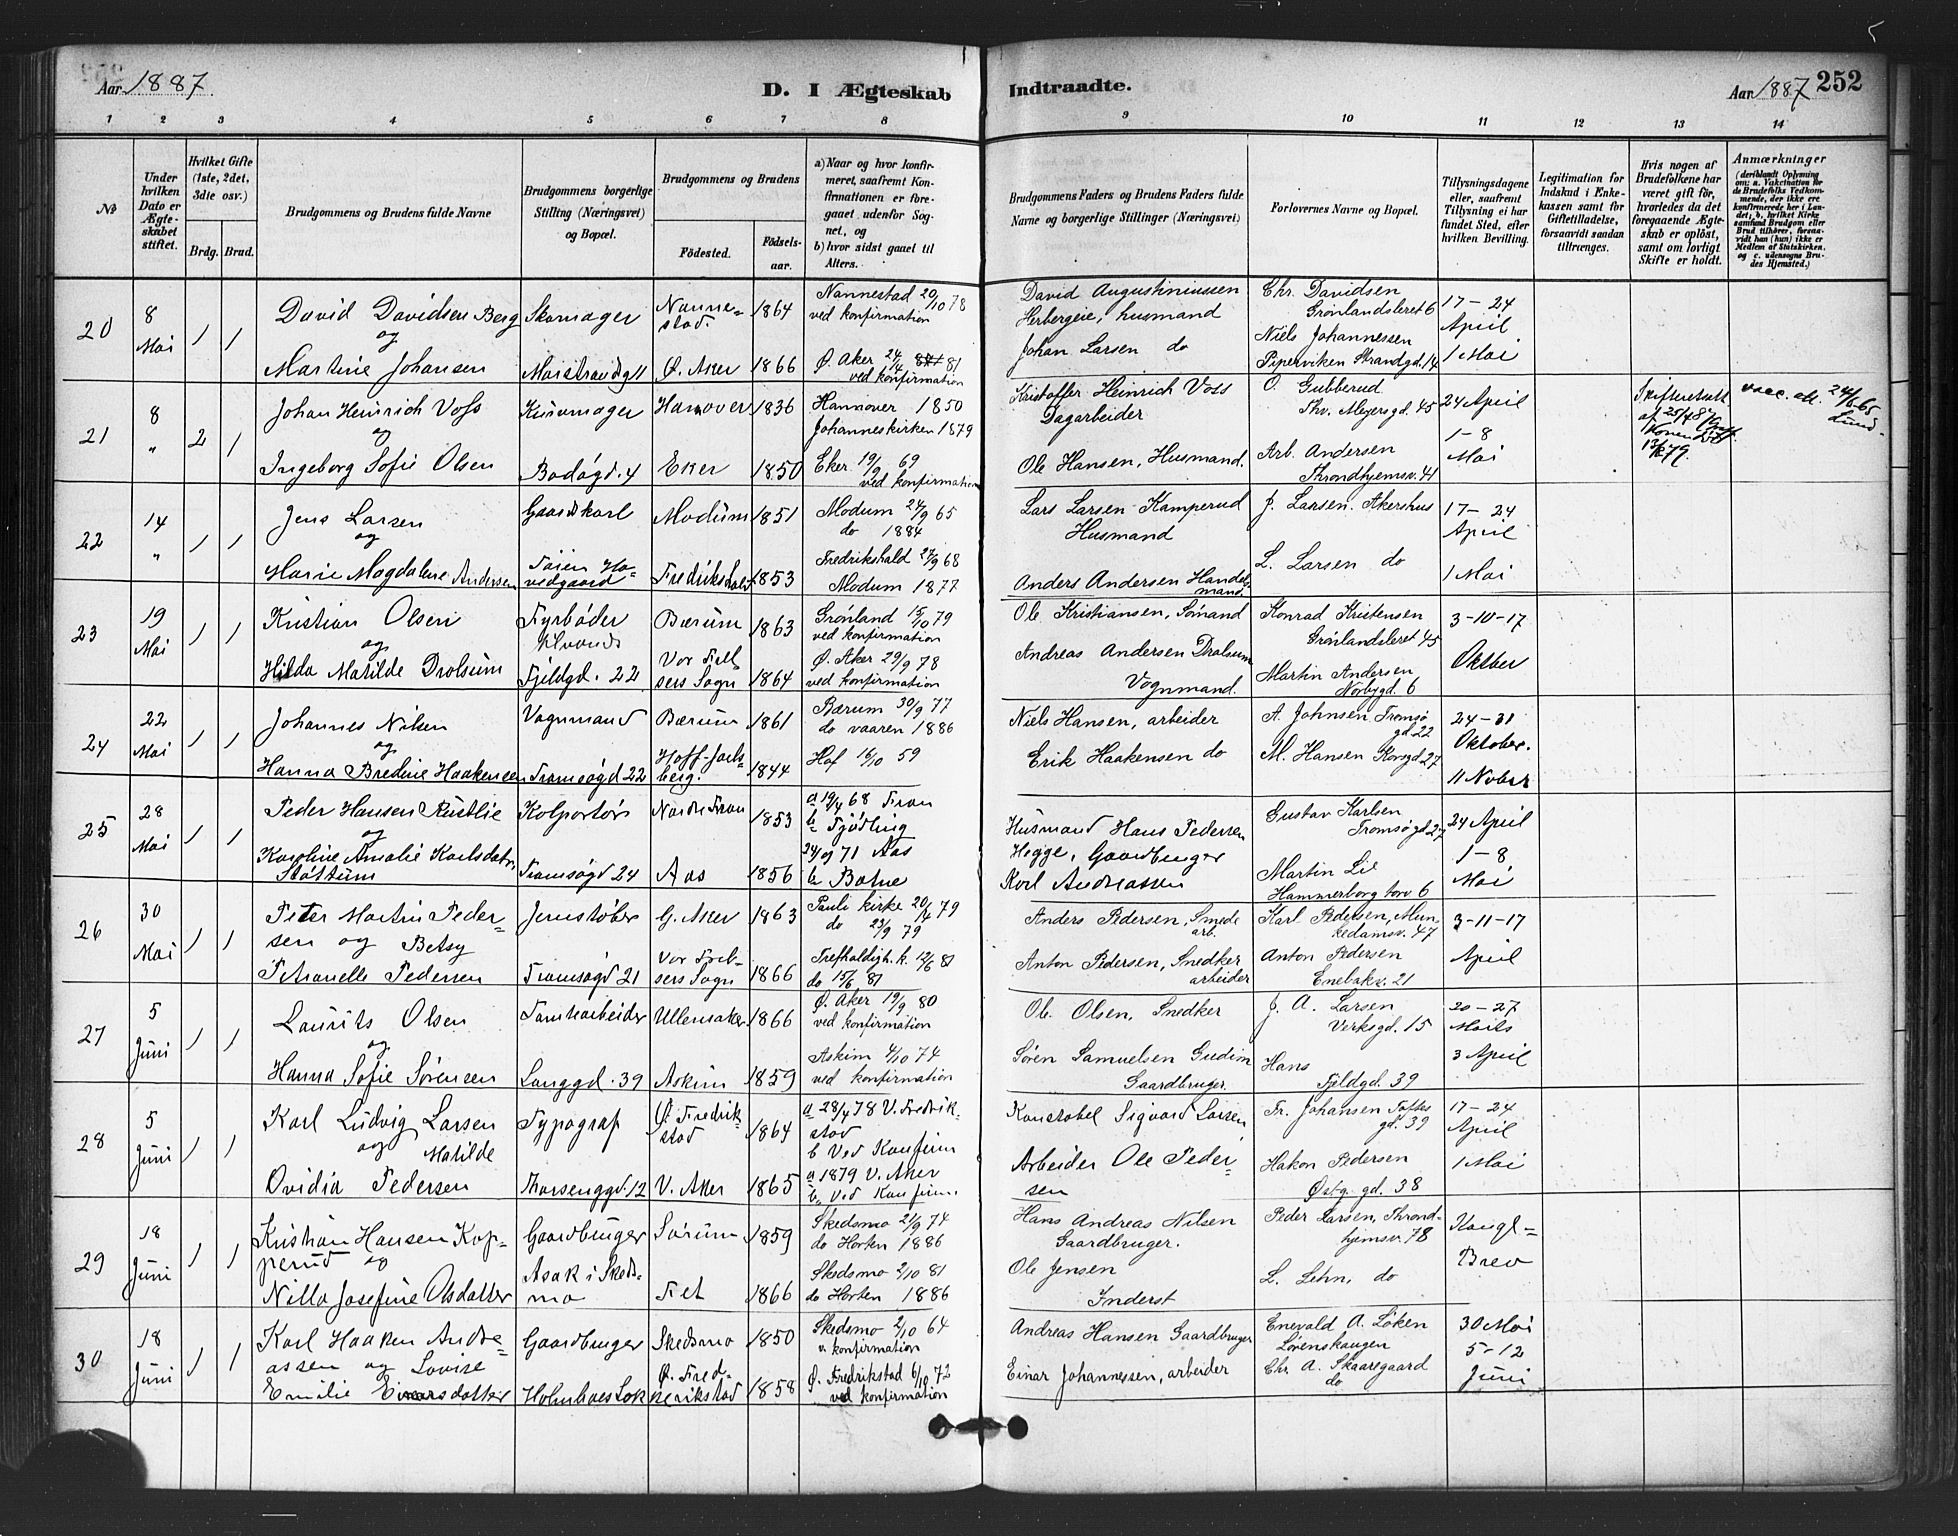 Aar 1887. D. I Ægteskab Indtraadte. Aar 1887 252
1 2 3 4 5 6 7 8 9 10 11 12 13 14
No
Under hvilken Dato er Ægteskabet stiftet.
Hvilket Gifte (1ste, 2det, 3die osv.)
Brdg. Brud.
Brudgommens og Brudens fulde Navne
Brudgommens borgerlige Stilling (Næringsvei) og Bopæl.
Brudgommens og Brudens
Fødested. Fødselsaar.
a) Naar og hvor konfirmeret, saafremt Konfirmationen er foregaaet udenfor Sognet, og
b) hvor sidst gaaet til Alters.
Brudgommens Faders og Brudens Faders fulde Navne og borgerlige Stillinger (Næringsvei)
Forlovernes Navne og Bopæl.
Tillysningsdagene eller, saafremt Tillysning ei har fundet Sted, efter hvilken Bevilling.
Legitimation for Indskud i Enkekassen samt for Giftetilladelse, forsaavidt saadan tiltrænges.
Hvis nogen af Brudefolkene har været gift før, hvorledes da det foregaaende Ægteskab er opløst, samt om lovligt Skifte er holdt.
Anmærkninger (deriblandt Oplysning om: a. Vakcination for de Brudefolks Vedkommende, der ikke ere konfirmerede her i Landet; b. hvilket Kirkesamfund Brudgom eller Brud tilhører, forsaavidt han (hun) ikke er Medlem af Statskirken, og c. udensogns Brudes Hjemsted.)
20 8 Mai 1 1
David Davidsen Berg Skomager Nannestad. 1864 Nannestad 20/10 78 ved konfirmation
og
Martine Johansen Maistravdg 11 Ø. Aker 1866 Ø. Aker 24/4 81 ved konfirmation
David Augustiniussen Herbergeie, husmand
Johan Larsen do
Chr. Davidsen Grønlandsleret 6
Niels Johannessen Piperviken Strandgd. 14
17-24 April 1 Mai
21 8 " 2 1
Johan Heinrich Voss Kurvmager Hanover 1836 Hannover 1850 Johanneskirken 1879
og
Ingeborg Sofie Olsen Bodøgd. 4 Eker 1850 Eker 19/9 69 ved konfirmation
Kristoffer Heinrich Voss Dagarbeider
Ole Hansen, Husmand.
O. Gubberud Thv. Meyersgd. 45
Arb. Andersen Throndhjemsv. 41
24 April 1-8 Mai
vacc. att.
22 14 " 1 1
Jens Larsen Gaardskarl Modum 1851 Modum 24/9 65 do 1884
og
Marie Magdalene Andersen Tøien Hovedgaard Fredrikshald 1853 Fredrikshald 27/9 68 Modum 1877
Lars Larsen Kamperud Husmand
Anders Andersen Handelsmand.
J. Larsen. Akershus
L. Larsen do
17-24 April 1 Mai
23 19 Mai 1 1
Kristian Olsen Fyrbøder Bærum 1863 Grønland 15/10 79 ved konfirmation
og
Hilda Matilde Drolsum Fjeldgd. 22 Vor Frelsers Sogn 1864 Ø. Aker 29/9 78 ved konfirmation
Ole Kristiansen, Sømand
Andreas Andersen Drolsum Vognmand.
Konrad Kristensen Grønlandsleret 45
Martin Andersen Norbygd. 6
3-10-17 Oktber
24 22 Mai 1 1
Johannes Nilsen Vognmand Bærum 1861 Bærum 30/9 77 do vaaren 1886
og
Hanna Bredine Haakensen Tromsøgd 22 Hoff-Jarlsberg. 1844 Hof 16/10 59
Niels Hansen, arbeider
Erik Haakensen do
A. Johnsen Tromsøgd 22
M. Hansen Korsgd 27
24-31 Oktober. 11 Nobvr
25 28 Mai 1 1
Peder Hansen Kustlie Kolportør Nordre Fron 1853 a 19/4 68 Fron b
og
Karoline Amalie Karlsdatr. Støttum Tromsøgd 24 Aas 1856 24/09 71 Aas b Botne
Husmand Hans Pedersen Hegge, Gaardbruger
Karl Andreassen
Gustav Karlsen Tromsøgd 27
Martin Lie Hammerborg torv 6
24 April 1-8 Mai
26 30 Mai 1 1
Peter Martin Pedersen og Betsy Jernstøber G. Aker 1863 Pauli kirke 20/4 79 do 23/9 79
Petronelle Pedersen Tromsøgd 21 Vor Frelsers Sogn 1866 Trefoldigh. k. 12/6 81 do 15/6 81
Anders Pedersen, Smedearb.
Anton Pedersen, Snedker arbeider
Karl Pedersen, Munkedamsv. 47
Anton Pedersen Enebakv. 21
3-11-17 April
27 5 Juni 1 1
Laurits Olsen Tomtearbeider Ullensaker 1866 Ø. Aker 19/9 80 ved konfirmation
og
Hanna Sofie Sørensen Langgd. 39 Askim 1859 Askim 4/10 74 ved konfirmation
Ole Olsen, Snedker
Søren Samuelsen Gudim Gaardbruger.
J. A. Larsen Verksgd. 15
Hans Fjeldgd. 39
20-27 Marts 3 April
28 5 Juni 1 1
Karl Ludvig Larsen Typograf Ø. Fredrikstad 1864 a 28/4 78 V. Fredrikstad b Ved Konfirm
og Matilde
Ovidia Pedersen Thorsenggd. 12 V. Aker 1865 a 1879 V. Aker b, ved Konfirm.
Konstabel Sigvard Larsen
Arbeider Ole Pedersen
Fr. Johansen Toftesgd. 39
Hakon Pedersen Østg. gd. 38
17-24 April 1 Mai
29 18 Juni 1 1
Kristian Hansen Kopperud og Gaardbruger Sørum 1859 Skedsmo 21/9 74 do Horten 1886
Nilla Josefine Olsdatter Asak i Skedsmo Fet 1866 Skedsmo 2/10 81 do Horten 1886
Hans Andreas Nilsen Gaardbruger.
Ole Jensen Inderst
Peder Larsen, Throndhjemsv. 78
L. Lehn, do
Kongl- Brev
30 18 Juni 1 1
Karl Haaken Andreassen og Lovise Gaardbruger Skedsmo 1850 Skedsmo 2/10 64 v. konfirmation
Emilie Einarsdatter Ø. Fredrikstad 1858 Ø. Fredrikstad 6/10 72 ved konfirmation
Andreas Hansen Gaardbruger
Einar Johannessen, arbeider
Enevald A. Løken Lørenskaugen
Chr. A. Skaaregaard do
30 Mai 5-12 Juni